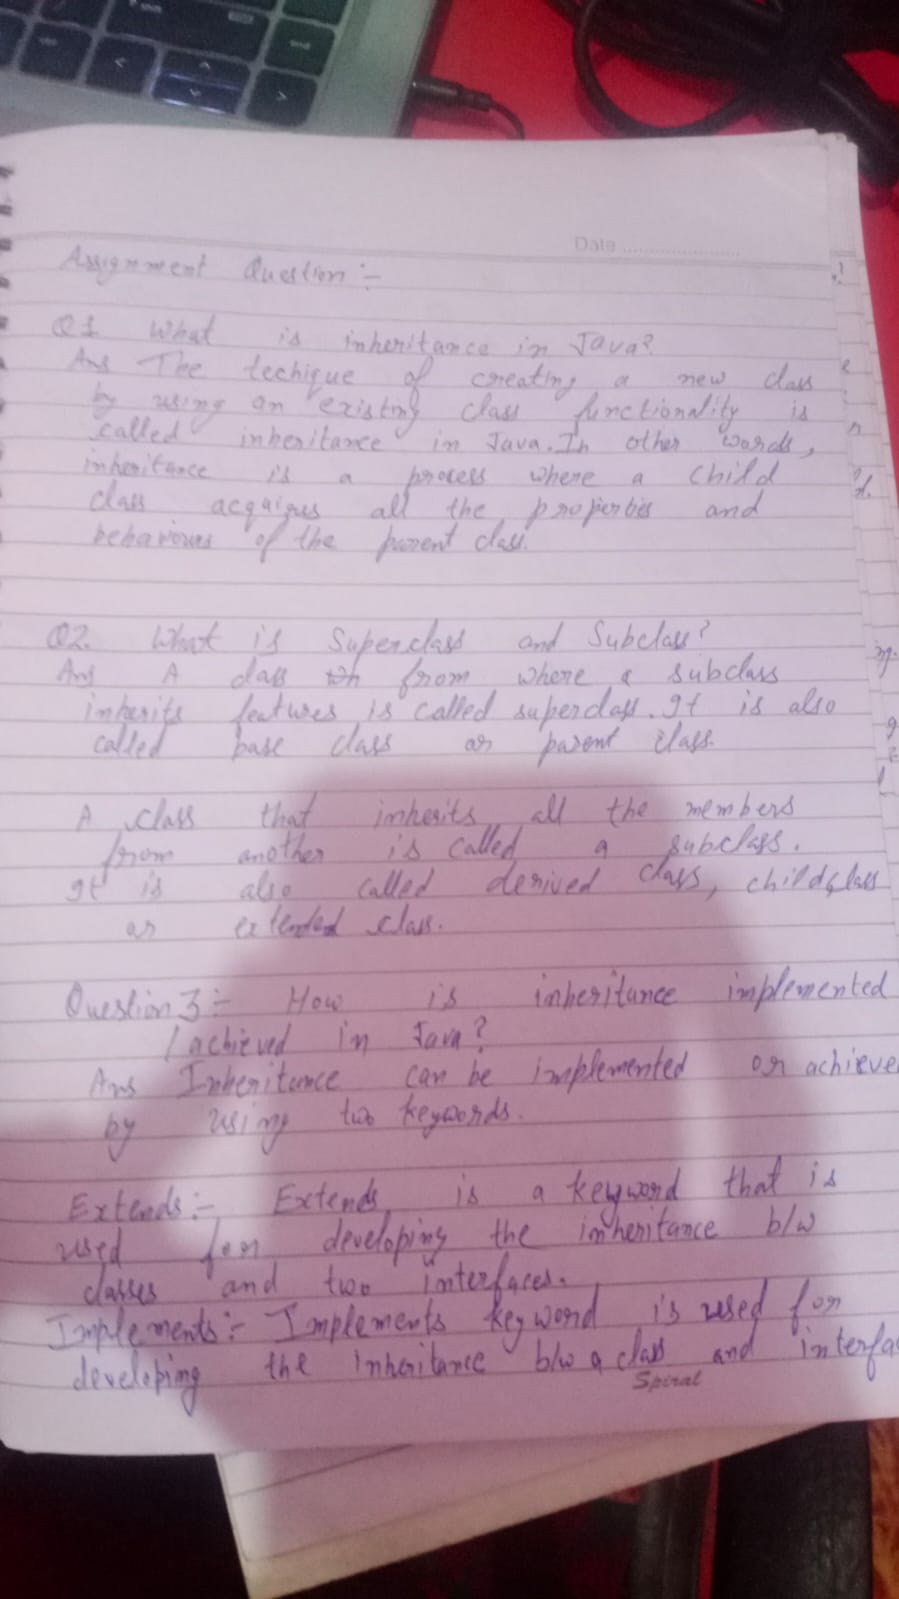 Date
Assignment Question :-
Q1 What is inheritance in Java?
Ans The techique of creating a new class
by using an existing class functionality is
called inheritance in Java. In other words,
inheritance is a process where a child
class acquires all the properties and
behaviours of the parent class.
Q2. What is Superclass and Subclass?
Ans A class from where a subclass
inherits features is called superclass. It is also
called base class or parent class.
A class that inherits all the members
from another is called a subclass.
It is also called derived class, child class
or extended class.
Question 3 :- How is inheritance implemented
/ achieved in Java?
Ans Inheritance can be implemented or achieve
by using two keywords.
Extends :- Extends is a keyword that is
used for developing the inheritance b/w
classes and two interfaces.
Implements :- Implements keyword is used for
developing the inheritance b/w a class and interfa
Spiral